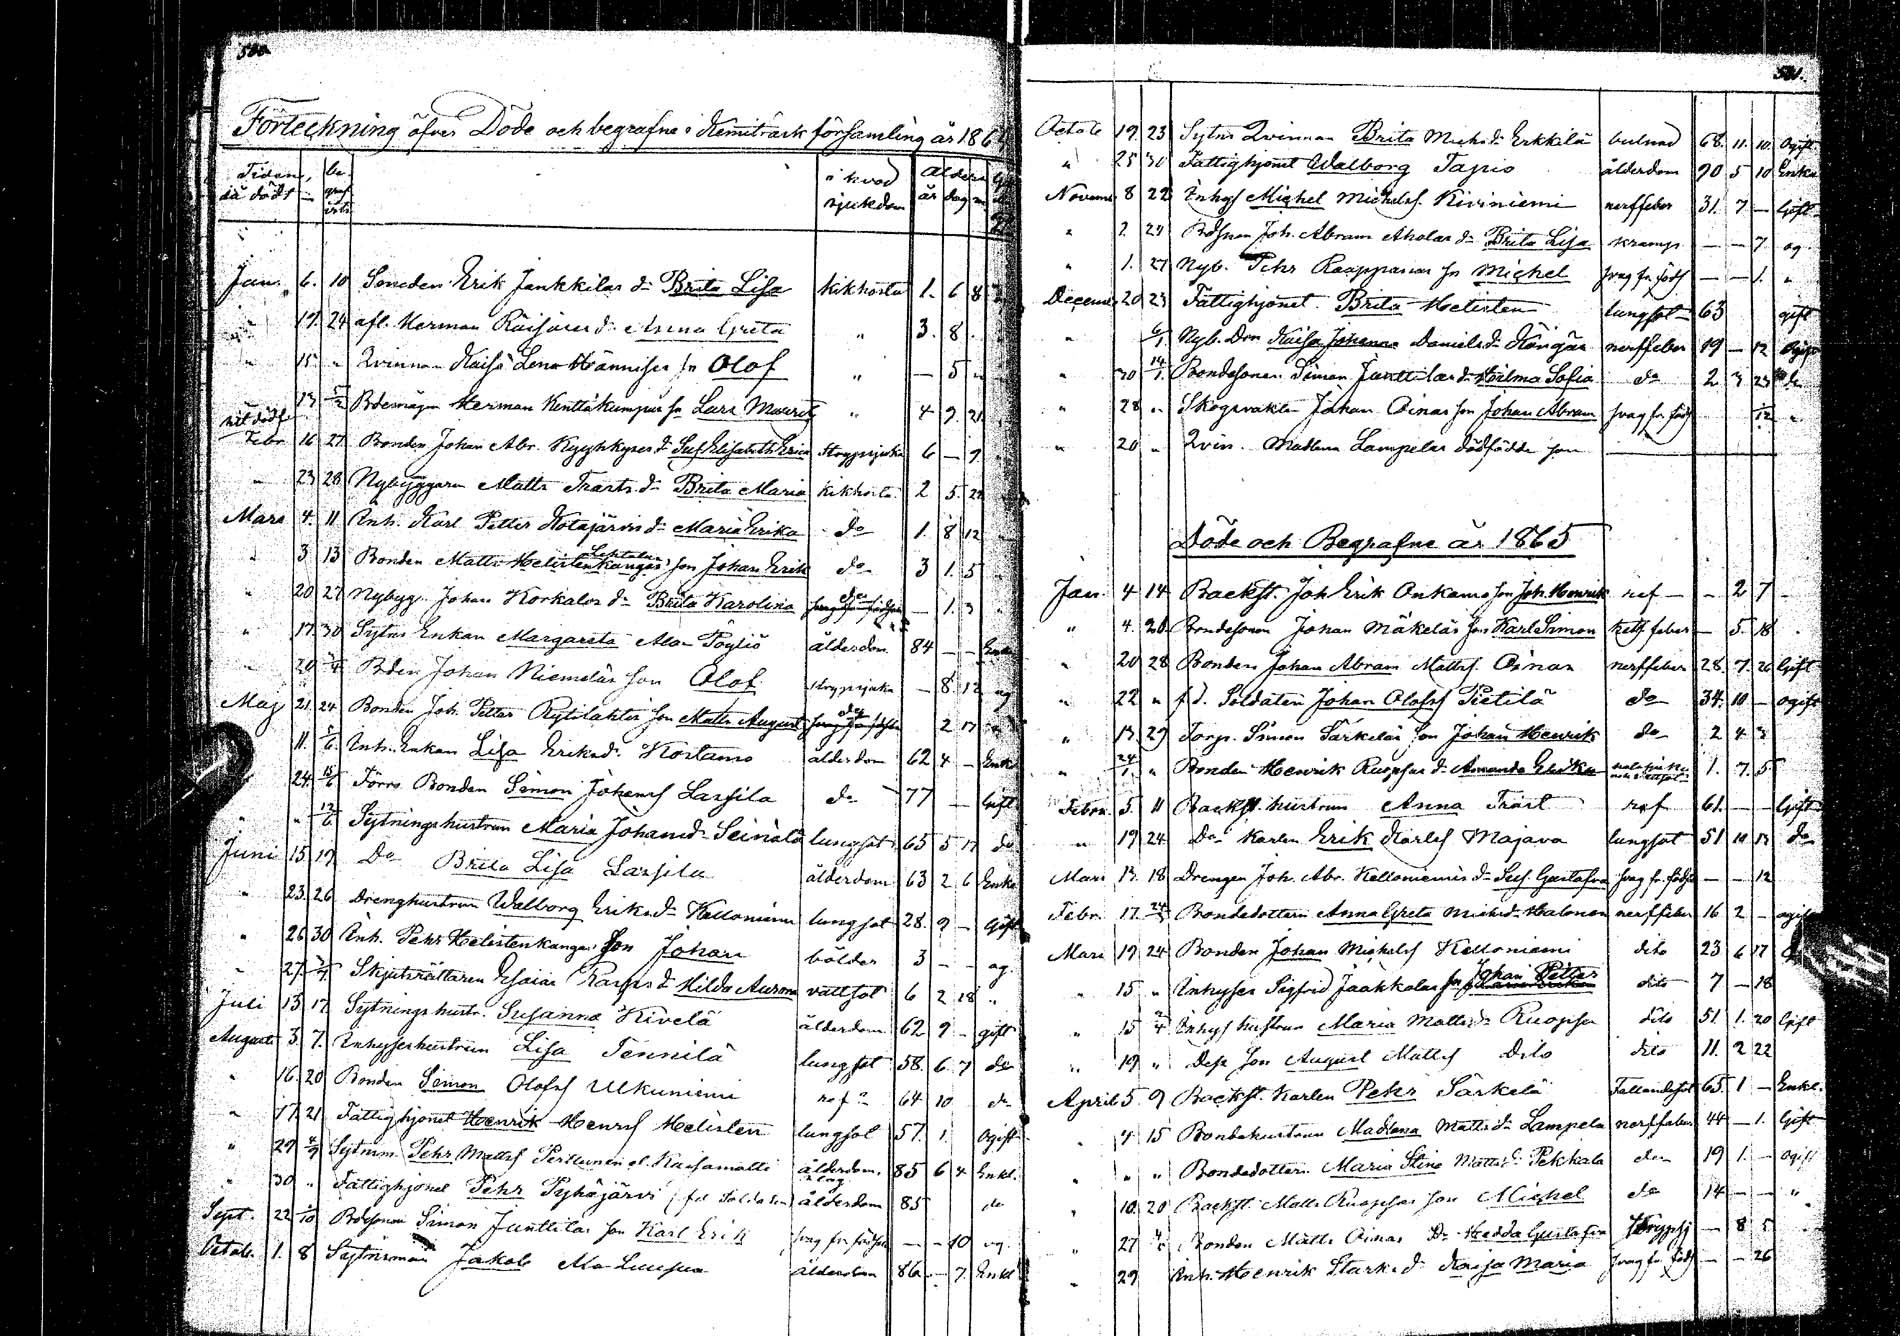 500.
Förteckning öfver Döde och begrafne i Kemiträsk församling år 1864
Tiden, då dödt begrafvits i hvad sjukdom Ålder år dag
Jan. 6. 10 Sonedon Erik Jankkilas dr Brita Lisa kikhosta 1. 6 8
" 19. 24 afl. Herman Räisäses dr Anna Greta " 3. 8.
" 15 " Qvinnan Kaisa Lena Hännises sn Olof " — 5 "
13 5/2 Bdemågen Herman Kenttäkumpus sn Lars Maurits " 4 9. 21
Febr. 16 27 Bonden Johan Abr. Kyykkyses dr Elisabeth Erica Strypsjuka 6 — 9
" 23 28 Nybyggaren Matts Trasts dr Brita Maria kikhosta 2 5. 22
Mars 4. 11 Inh. Karl Petter Kotajärvis dr Maria Erika do 1. 8 12
" 3 13 Bonden Matts Helistenkangas son Johan Erik do 3 1. 5
" 20 27 Nybyg. Johan Korkalos dr Brita Karolina — 1. 3
" 17. 30 Sytns Enkan Margareta Ala Pöyliö ålderdom 84 — — Enka
" 20 Bden Johan Niemeläs son Olof strypsjuka — 8 12 og
Maj 21. 24 Bonden Joh. Petter Rytilahtis son Matts August 2 17 "
11. Inh. Enkan Lisa Eriksd. Kostamo ålderdom 62 4 — Enka
24. Förra Bonden Simon Johansf Lassila do 77 — Gift
" " 12/6 Sytningshustrun Maria Johansdr Seinälä lungsot 65 5 17 do
Juni 15 19 Do Brita Lisa Lassila ålderdom 63 2 6 Enka
" 23. 26 Drenghustrun Walborg Eriksdr Kelloniemi lungsot 28. 9 — Gift
" 26 30 Inh. Pehr Helistenkangas son Johan bölder 3 — — og.
" 27. Skjutsrättaren Esaias dr Hilda Aurora vattsot 6 2 18 "
Juli 13 17 Sytningshustr. Susanna Kivelä ålderdom 62 9 — gift
Augusti 3. 7. Inhyseshustrun Lisa Tennilä lungsot 58. 6. 7 do
" 16. 20 Bonden Simon Olofsf Ulkuniemi rof 64 10 do
" 17. 21 Fattighjonet Henrik Henrsf Helisten lungsot 57. 1. Ogift
" 29 4/9 Sytnm. Pehr Mattsf Perttunen el. Kaisamatti ålderdom. 85 6 4 Enkl.
" 30 " Fattighjonet Pehr Pyhäjärvi (fd Soldaten) ålderdom 85 do
Sept. 22 Bdesonen Simon Junttilas son Karl Erik svag fr. födseln — — 10 og.
Octob. 1. 8 Sytnisman Jakob Ala Luusua ålderdom 86 — 7. Enkl.
501.
Octob 19. 23 Sytns Qvinnan Brita Michsdr Erkkilä bulnad 68. 11. 10. Ogift
" 25 30 Fattighjonet Walborg Tapio ålderdom 90 5 10 Enka
Novem 8 22 Inhys Michel Michelsf Kiviniemi nerffeber 31. 7 — Gift
" 2 24 Bdesonen Joh. Abram Aholas dr Brita Lisa kramp — — 7. og.
" 1. 27 Nyb. Pehr Raappanas sn Michel svag fr födsl — — 1. "
Decem 20 23 Fattighjonet Brita Helisten lungsot 63 gift
" 6/1 Nyb. Drn Kaisa Johanna Danielsdr Köngäs nerffeber 19 — 12 Ogift
" 30 14/1. Bondesonen Simon Junttilas dr Hilma Sofia do 2 3 23 do
" 28 " Skogsvakten Johan Oinas son Johan Abram svag fr födsl 12 "
" 20 " Qvin. Madlena Lampelas dödfödde son
Döde och Begrafne år 1865
Jan. 4 14 Backst. Joh Erik Onkamo son Joh. Henrik rof — — 2 7 —
" 4. 20 Bondesonen Johan Mäkeläs son Karl Simon feber — 5. 18
" 20 28 Bonden Johan Abram Mattsf Oinas nerffeber 28. 7. 26 Gift
" 22 " f.d. Soldaten Johan Olofsf Pietilä do 34. 10 — ogift
" 13. 29 Torp. Simon Särkeläs son Johan Henrik do 2 4 3
" " Bonden Henrik Ruopsas dr Amanda 1. 7. 5
Febru. 5. 11 Backst hustrun Anna Trast rof 61. — — Gift
" 19 24 Do Karlen Erik Karlsf Majava lungsot 51 10 13 do
Mars 13. 18 Drengen Joh. Abr. Kelloniemis dr Gustafva svag fr. födsl — — 12
Febr. 17 Bondedottern Anna Greta Michsdr Halonen nerffeber 16 2 — ogift
Mars 19 24 Bonden Johan Michelsf Kelloniemi dito 23 6 17
" 15 " Inhyses Sigfrid Jaakkolas sn Johan Petter dito 7 — 18
" 15 2/4 Inhys hustrun Maria Mattsdr Ruopsa dito 51 1. 20 Gift
" 19 " Dess son August Mattsf Dito dito 11. 2 22
April 5. 9 Backst. Karlen Pehr Särkelä Fallandesot 65. 1 — Enkl.
" 4 15 Bondehustrun Madlena Mattsdr Lampela nerffeber 44 — 1. Gift
" " " Bondedottern Maria Stina Mattsdr Pekkala do 19 1. — Ogift
" 10 20 Backst. Matts Ruopsas son Michel do 14 — — "
" 27 Bonden Matts Oinas Dr Hedda Gustafva Strypsj — 8 5
" 29 Inh. Henrik Starks dr Kaisa Maria svag fr. födsl — — 26